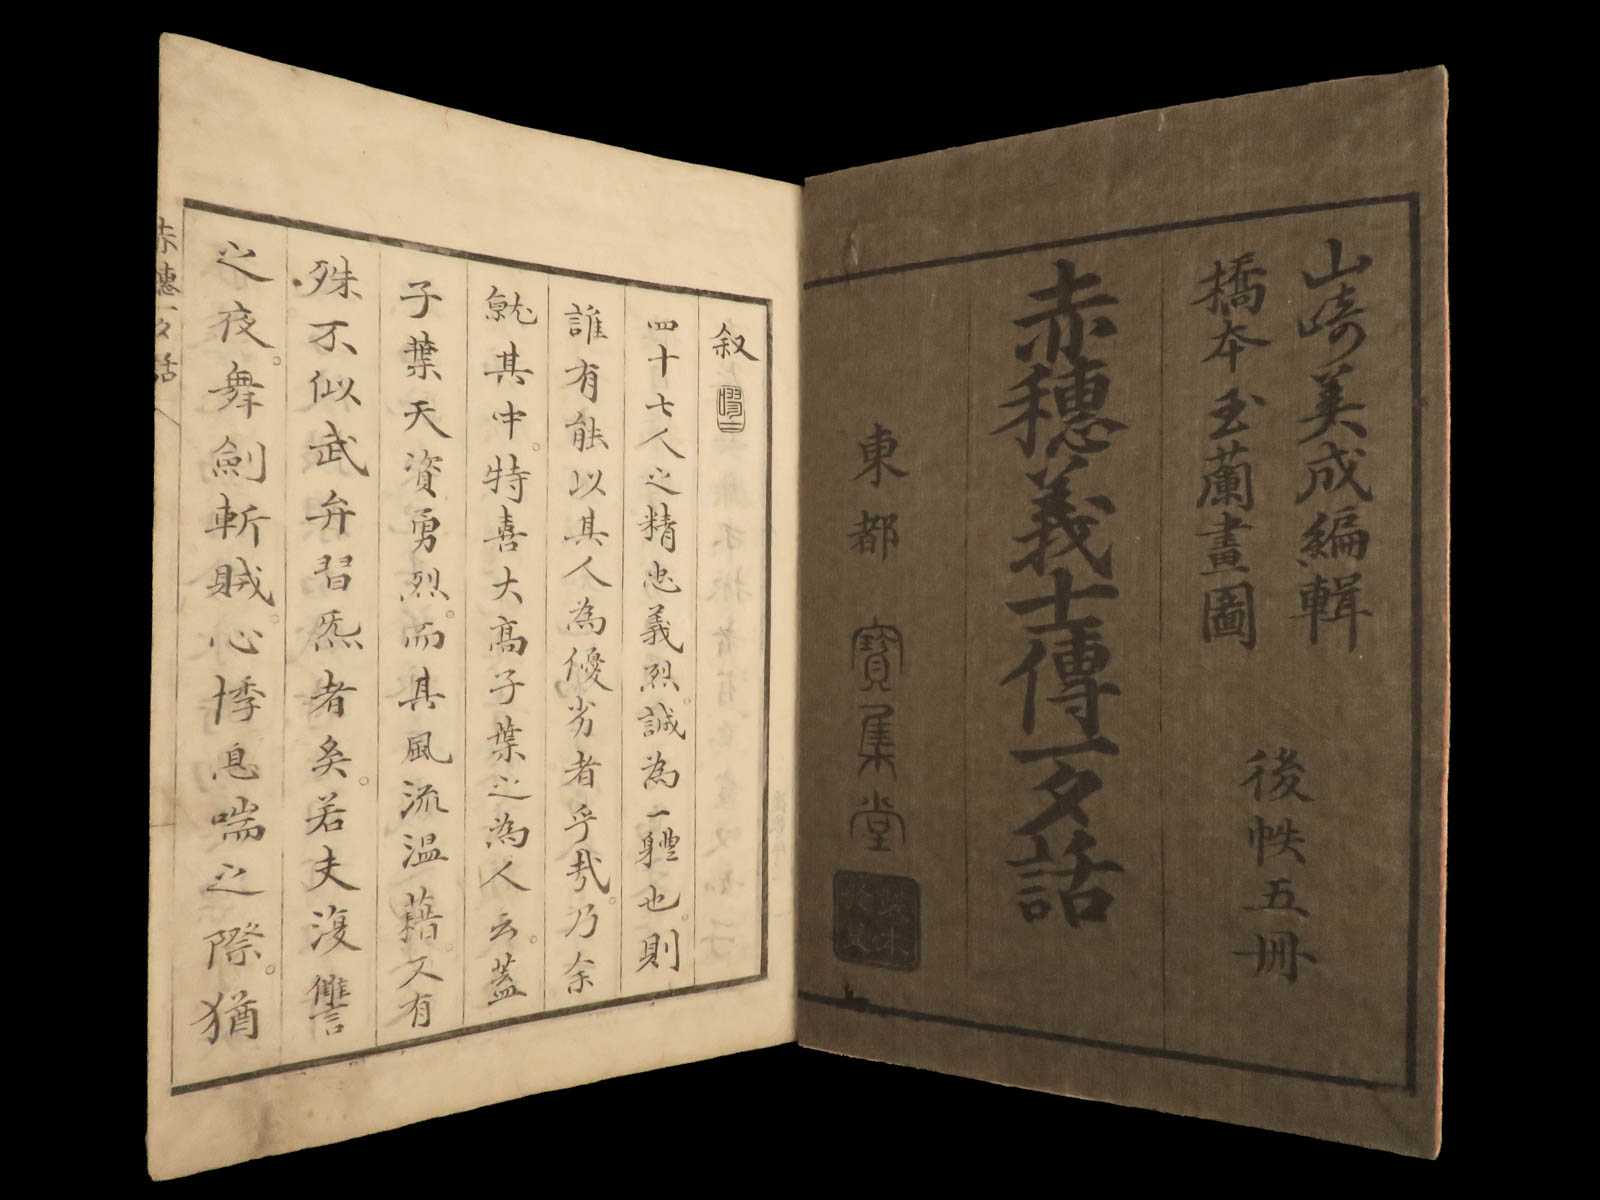 山崎美成編輯
橋本玉蘭畫圖
後帙五冊
赤穗義士傳一夕話
東都 寶集堂
叙
四十七人之精忠義烈。誠為一軆也。則
誰有能以其人為優劣者乎哉。乃余
就其中。特喜大高子葉之為人云。蓋
子葉天資勇烈。而其風流温藉。又有
殊不似武弁習氣者矣。若夫復讐
之夜。舞劍斬賊。心悸息喘之際。猶
赤穗一夕話